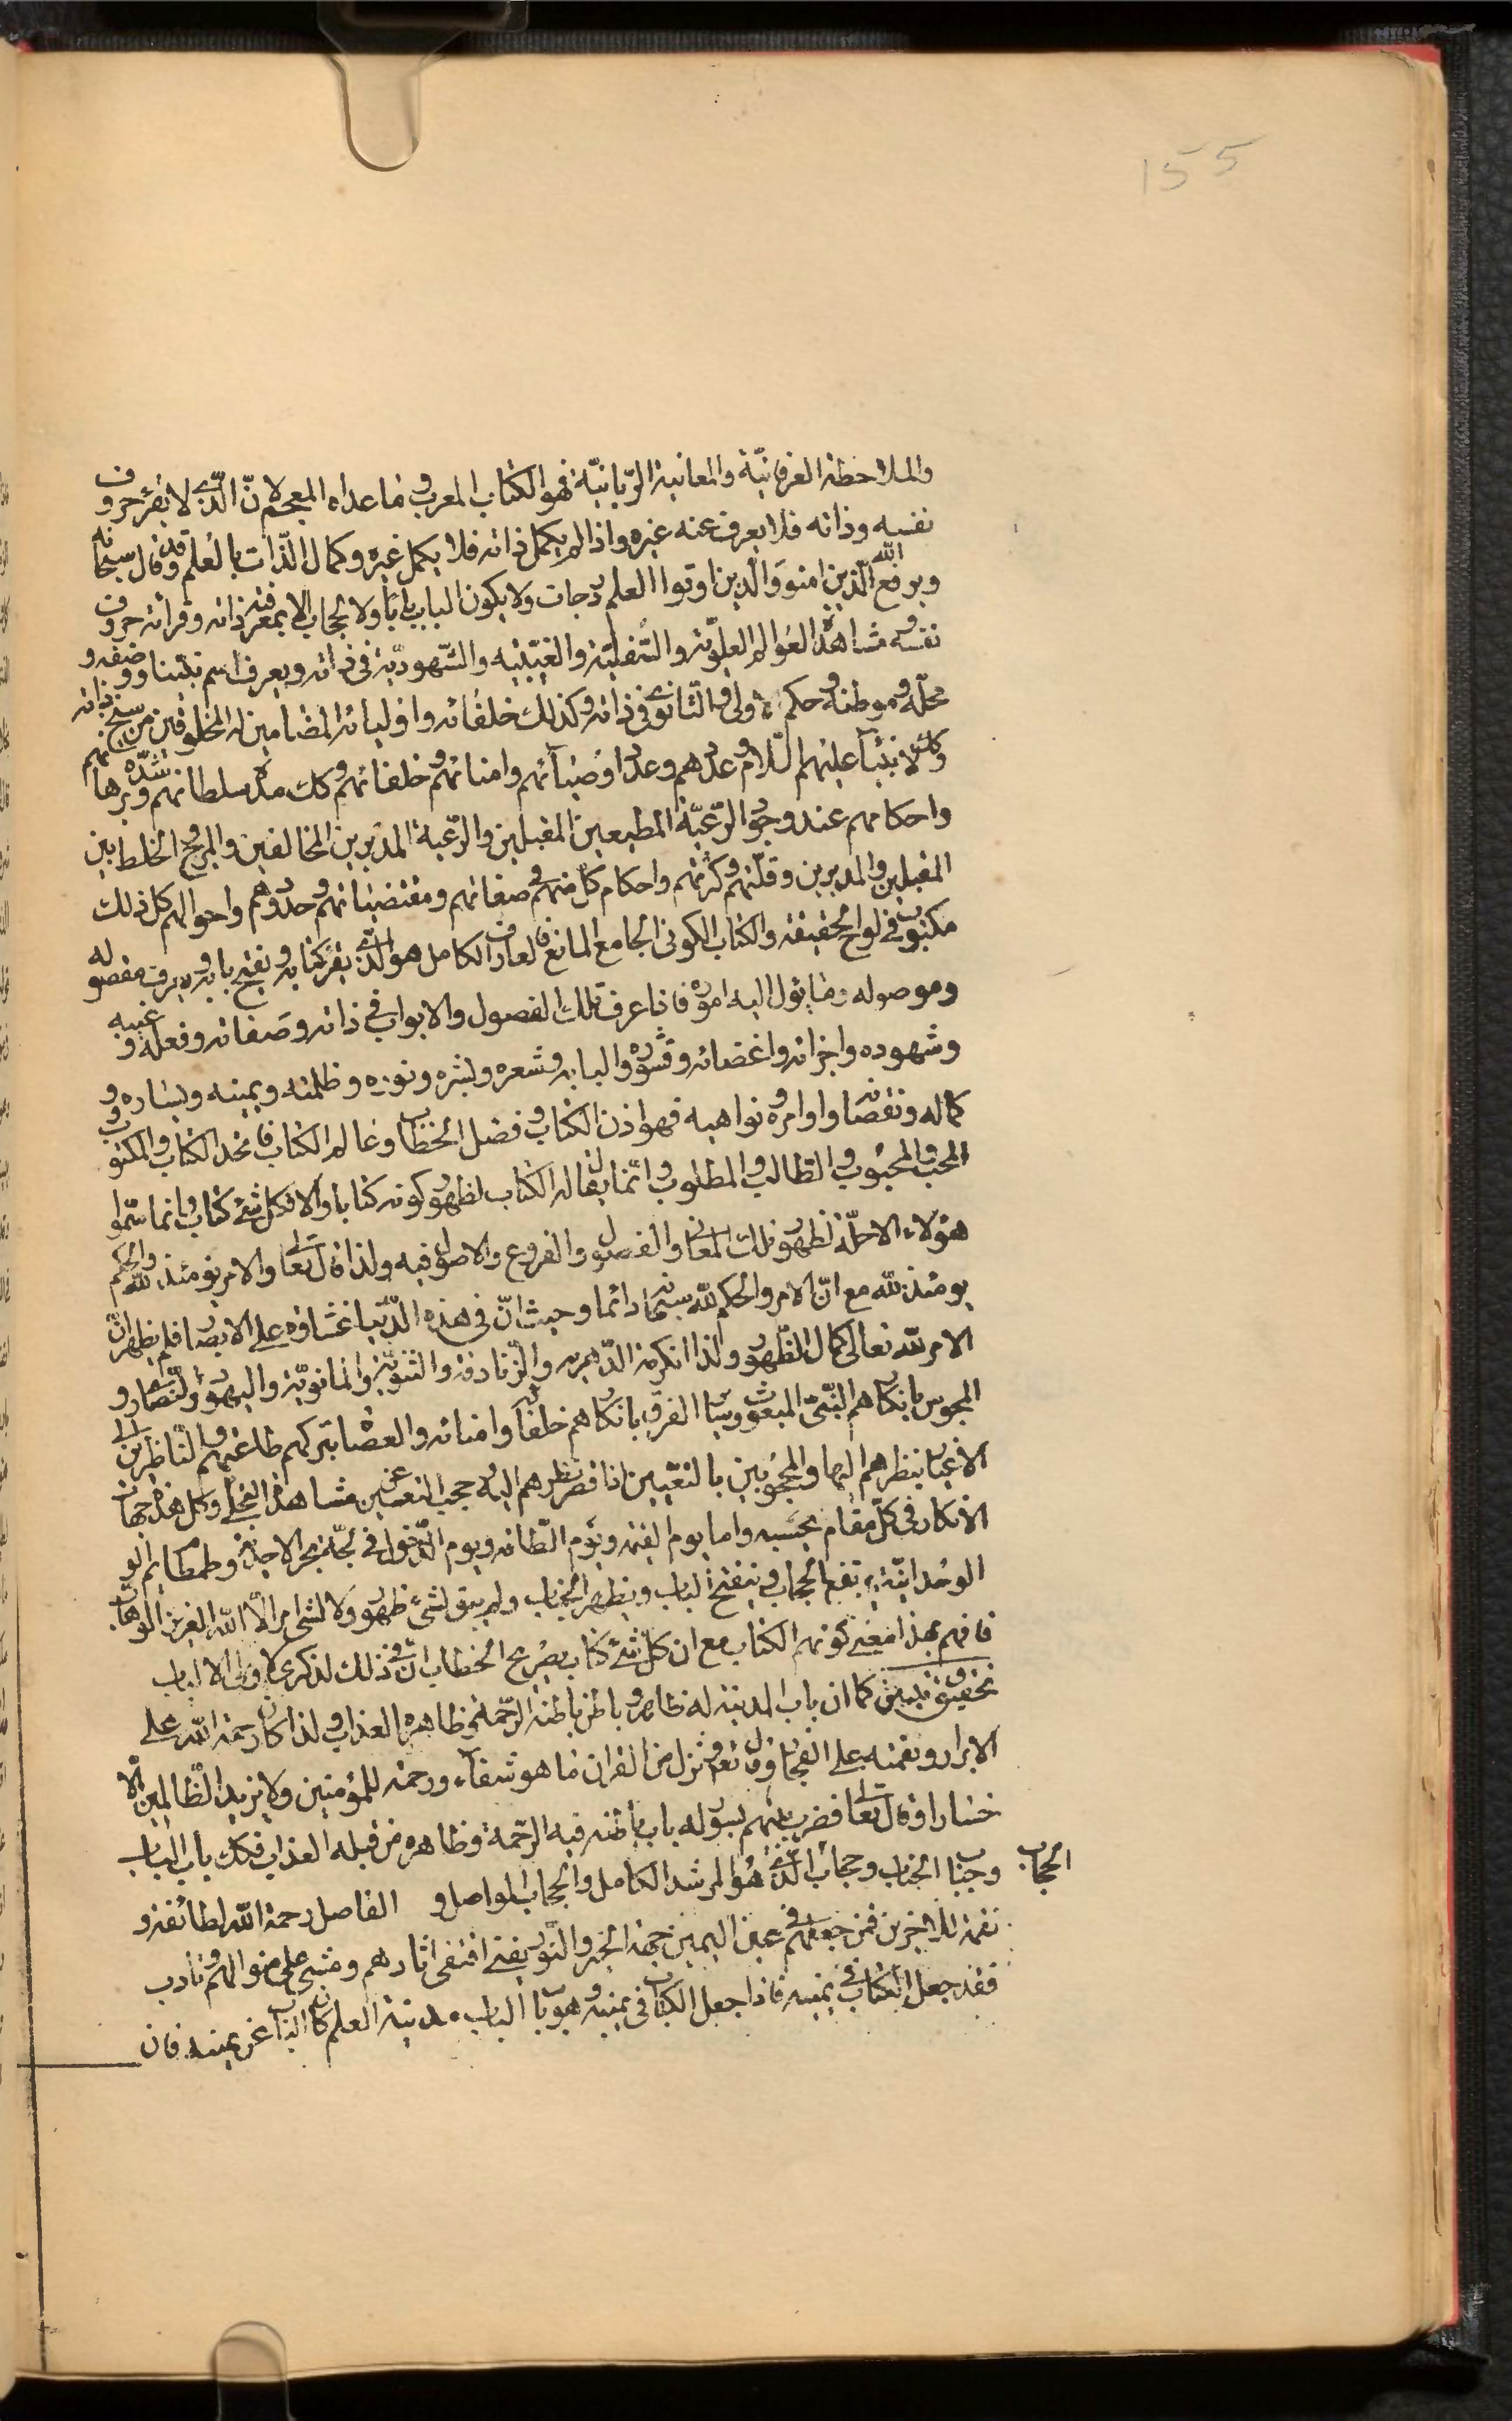 155
والملاحظة العرفانية والمعاينة الربّانيّة فهو الكتاب المعرب و ما عداه المعجم لانّ الّذى لا يقرء حروف
نفسه وذاته فلا يعرف عنه غيره واذا لم يكمل ذاته فلا يكمل غيره وكمال الذّات بالعلم وقد قال سبحانه
ويرفع الله الّذين امنو والّذين اوتوا العلم درجات ولا يكون الباب بابا ولا الحجاب الا بمعرفة ذاته وقرائة حروف
نفسه ومشاهدة العوالم العلويّة والسّفليّة والغيبيّة والشّهوديّة فى ذاته ويعرف اسم نبيّنا ووصفه و
محلّه وموطنه وحكمه الاولى والثانوى فى ذاته وكذلك خلفائه واوليائه المضامين له المخلوقين من سنخ ذاته
وكك الانبيآء عليهم السّلام وعددهم وعدد اوصيآئهم وامنائهم وخلفائهم وكك مدة سلطانهم
واحكامهم عند وجود الرّعيّة المطيعين المقبلين والرّعية المدبرين المخالفين والمزج الخلط بين
المقبلين والمدبرين وقلّتهم وكثرتهم واحكام كلّ منهم فى صفاتهم ومقتضياتهم وحدودهم واحوالهم كل ذلك
مكتوب فى لواح الحقيقة والكتاب الكونى الجامع المانع فالعارف الكامل هو الّذى يقرء كتابه ويفتح بابه ويعرف مفصوله
وموصوله وما يئول اليه اموره فاذا عرف تلك الفصول والابواب فى ذاته وصفاته وفعله وغيبه
وشهوده واجزائه واعضائه وقشوره والبابه وشعره وبشره ونوره وظلمته ويمينه ويساره و
كماله ونقصانه واوامره ونواهيه فهو اذن الكتاب وفصل الخطاب وعالم الكتاب فاتحد الكتاب والمكتوب و
المحب والمحبوب والطالب والمطلوب وانّما يقال له الكتاب لظهور كونه كتابا والا فكل شئ كتاب وانما سمّوا
هؤلاء الاجلّة لظهور تلك المعانى والفصول والفروع والاصول فيه ولذا قال تعالى والامر يومئذ لله والحكم
يومئذ لله مع انّ الامر والحكم لله سبحانه دائما وحيث انّ فى هذه الدّنيا غشاوة على الابصار فلم يظهر انّ
الامر لله تعالى كمال الظّهور ولذا انكرته الدّهرية والزّنادقة والثنويّة والمانويّة واليهود والنّصارى و
المجوس بانكارهم النّبىّ المبعوث وسائر الفرق بانكارهم خلفائه وامنائه والعصاة بتركهم طاعتهم والنّاظرين الى
الاغيار بنظرهم اليها والمحجوبين بالتعيّين اذا قصر نظرهم اليه حجب التعيين عن مشاهدة التجلّى وكل هذه جهات
الانكار فى كلّ مقام بحسبه واما يوم القيمة ويوم الطّامّة ويوم الدّخول فى لجّة بحر الاحديّة وطمطام يم الو
الوحدانيّة يرتفع الحجاب وينفتح الباب ويظهر الجناب ولم يبق لشئ ظهور ولا لشئ امر الّا الله العزيز الوهاب
فافهم بهذا معنى كونهم الكتاب مع ان كلّ شئ كتاب بصريح الخطاب انّ فى ذلك لذكرى لاولى الالباب
تحقيق وتبيين كما ان باب المدينة له ظاهر وباطن باطنه الرّحمة وظاهره العذاب ولذا كان رحمة الله على
الابرار ونقمته على الفجّار وقال تعالى وننزل من القران ما هو شفآء ورحمة للمؤمنين ولا يزيد الظّالمين الا
خسارا وقال تعالى فضرب بينهم بسور له باب باطنه فيه الرّحمة وظاهره من قبله العذاب فكك باب الباب
وجناب الجناب وحجاب الحجاب الّذى هو المرشد الكامل والحجاب المواصل و الفاصل رحمة الله لطائفة و
نقمة للاخرين فمن جعلهم فى عين اليمين جهة الخير والنّور يعنى اقتفى اثارهم ومشى على منوالهم وتادب
فقد جعل الكتاب فى يمينه فاذا جعل الكتاب فى يمينه وهو باب الباب مدينة العلم كان الباب عن يمينه فان